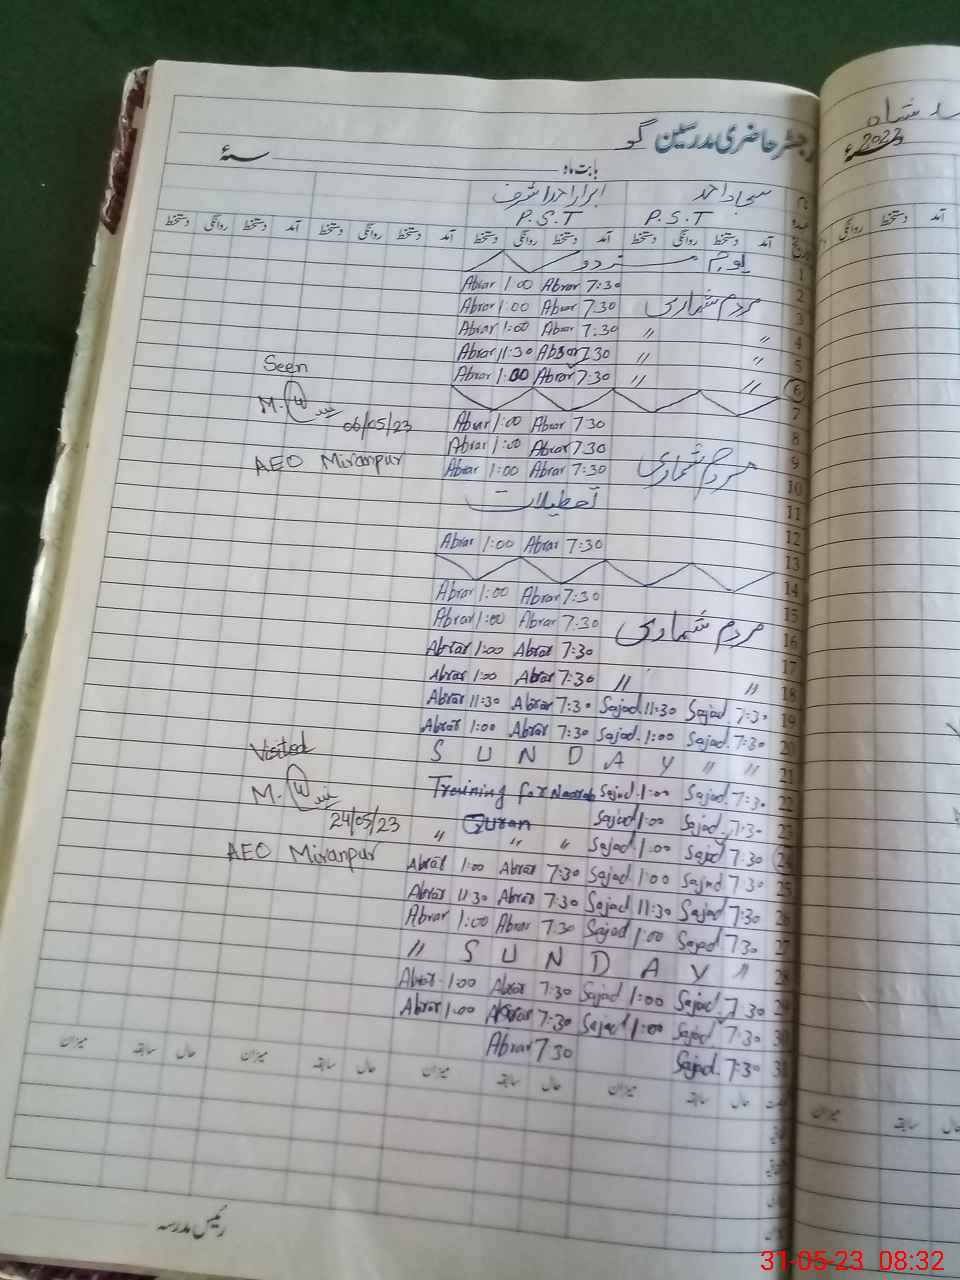 رجسٹر حاضری مدرسین گو
بابت ماہ سنہ ۲۰۲3
سجاد احمد ابرار احمد اشرف
P.S.T P.S.T
آمد دستخط روانگی دستخط آمد دستخط روانگی دستخط آمد دستخط روانگی دستخط آمد دستخط روانگی دستخط
1 یوم مزدور
2 Abrar 1:00 Abrar 7:30
3 مردم شماری Abrar 1:00 Abrar 7:30
4 〃 〃 Abrar 1:00 Abrar 7:30
5 〃 〃 Abrar 11:30 Abrar 7:30
6 〃 〃 Abrar 1:00 Abrar 7:30
Seen
M.
06/05/23
AEO Miranpur
7
8 Abrar 1:00 Abrar 7:30
9 مردم شماری Abrar 1:00 Abrar 7:30
10 Abrar 1:00 Abrar 7:30
11 تعطیلات
12
13 Abrar 1:00 Abrar 7:30
14
15 Abrar 1:00 Abrar 7:30
16 مردم شماری Abrar 1:00 Abrar 7:30
17 Abrar 1:00 Abrar 7:30
18 〃 〃 Abrar 1:00 Abrar 7:30
19 Abrar 11:30 Abrar 7:30 Sajad. 11:30 Sajad. 7:30
20 Abrar 1:00 Abrar 7:30 Sajad. 1:00 Sajad. 7:30
21 S U N D A Y 〃 〃
22 Training for Sajad. 1:00 Sajad. 7:30
23 Quran Sajad 1:00 Sajad. 7:30
24 〃 〃 〃 Sajad. 1:00 Sajad 7:30
Visited
M.
24/05/23
AEO Miranpur
25 Abrar 1:00 Abrar 7:30 Sajad. 1:00 Sajad 7:30
26 Abrar 11:30 Abrar 7:30 Sajad 11:30 Sajad 7:30
27 Abrar 1:00 Abrar 7:30 Sajad 1:00 Sajad 7:30
28 〃 S U N D A Y 〃
29 Abrar 1:00 Abrar 7:30 Sajad 1:00 Sajad. 7:30
30 Abrar 1:00 Abrar 7:30 Sajad 1:00 Sajad 7:30
31 Abrar 7:30 Sajad. 7:30
حال سابقہ میزان حال سابقہ میزان حال سابقہ میزان حال سابقہ میزان
رئیس مدرسہ
31-05-23 08:32